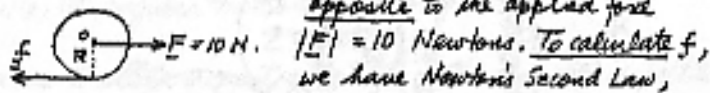 opposite to the applied force
O
R
f
F = 10 N.
|F| = 10 Newtons. To calculate f,
we have Newton's Second Law,